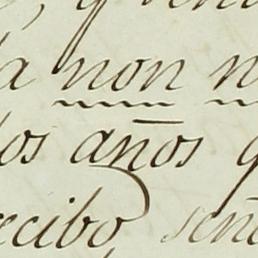 a non n
los años q
recibo, señ